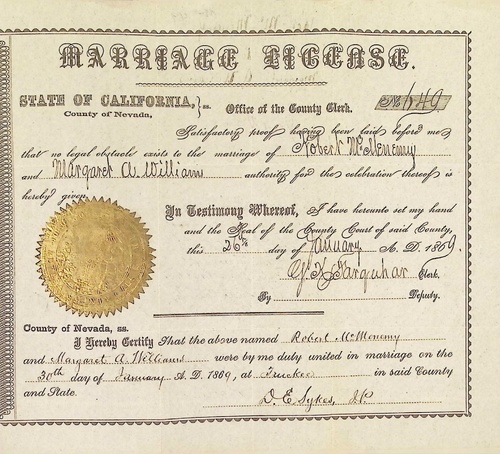 MARRIAGE LICENSE.
STATE OF CALIFORNIA, } ss. Office of the County Clerk. No. 649
County of Nevada,
Satisfactory proof having been laid before me
that no legal obstacle exists to the marriage of Robert McMenemy
and Margaret A. William authority for the celebration thereof is
hereby given.
In Testimony Whereof, I have hereunto set my hand
and the Seal of the County Court of said County,
this 26th day of January A. D. 1869.
Farquhar Clerk.
By Deputy.
County of Nevada, ss.
I Hereby Certify That the above named Robert McMenemy
and Margaret A. Williams were by me duly united in marriage on the
30th day of January A. D. 1869, at Truckee in said County
and State.
D. E. Sykes, J.P.